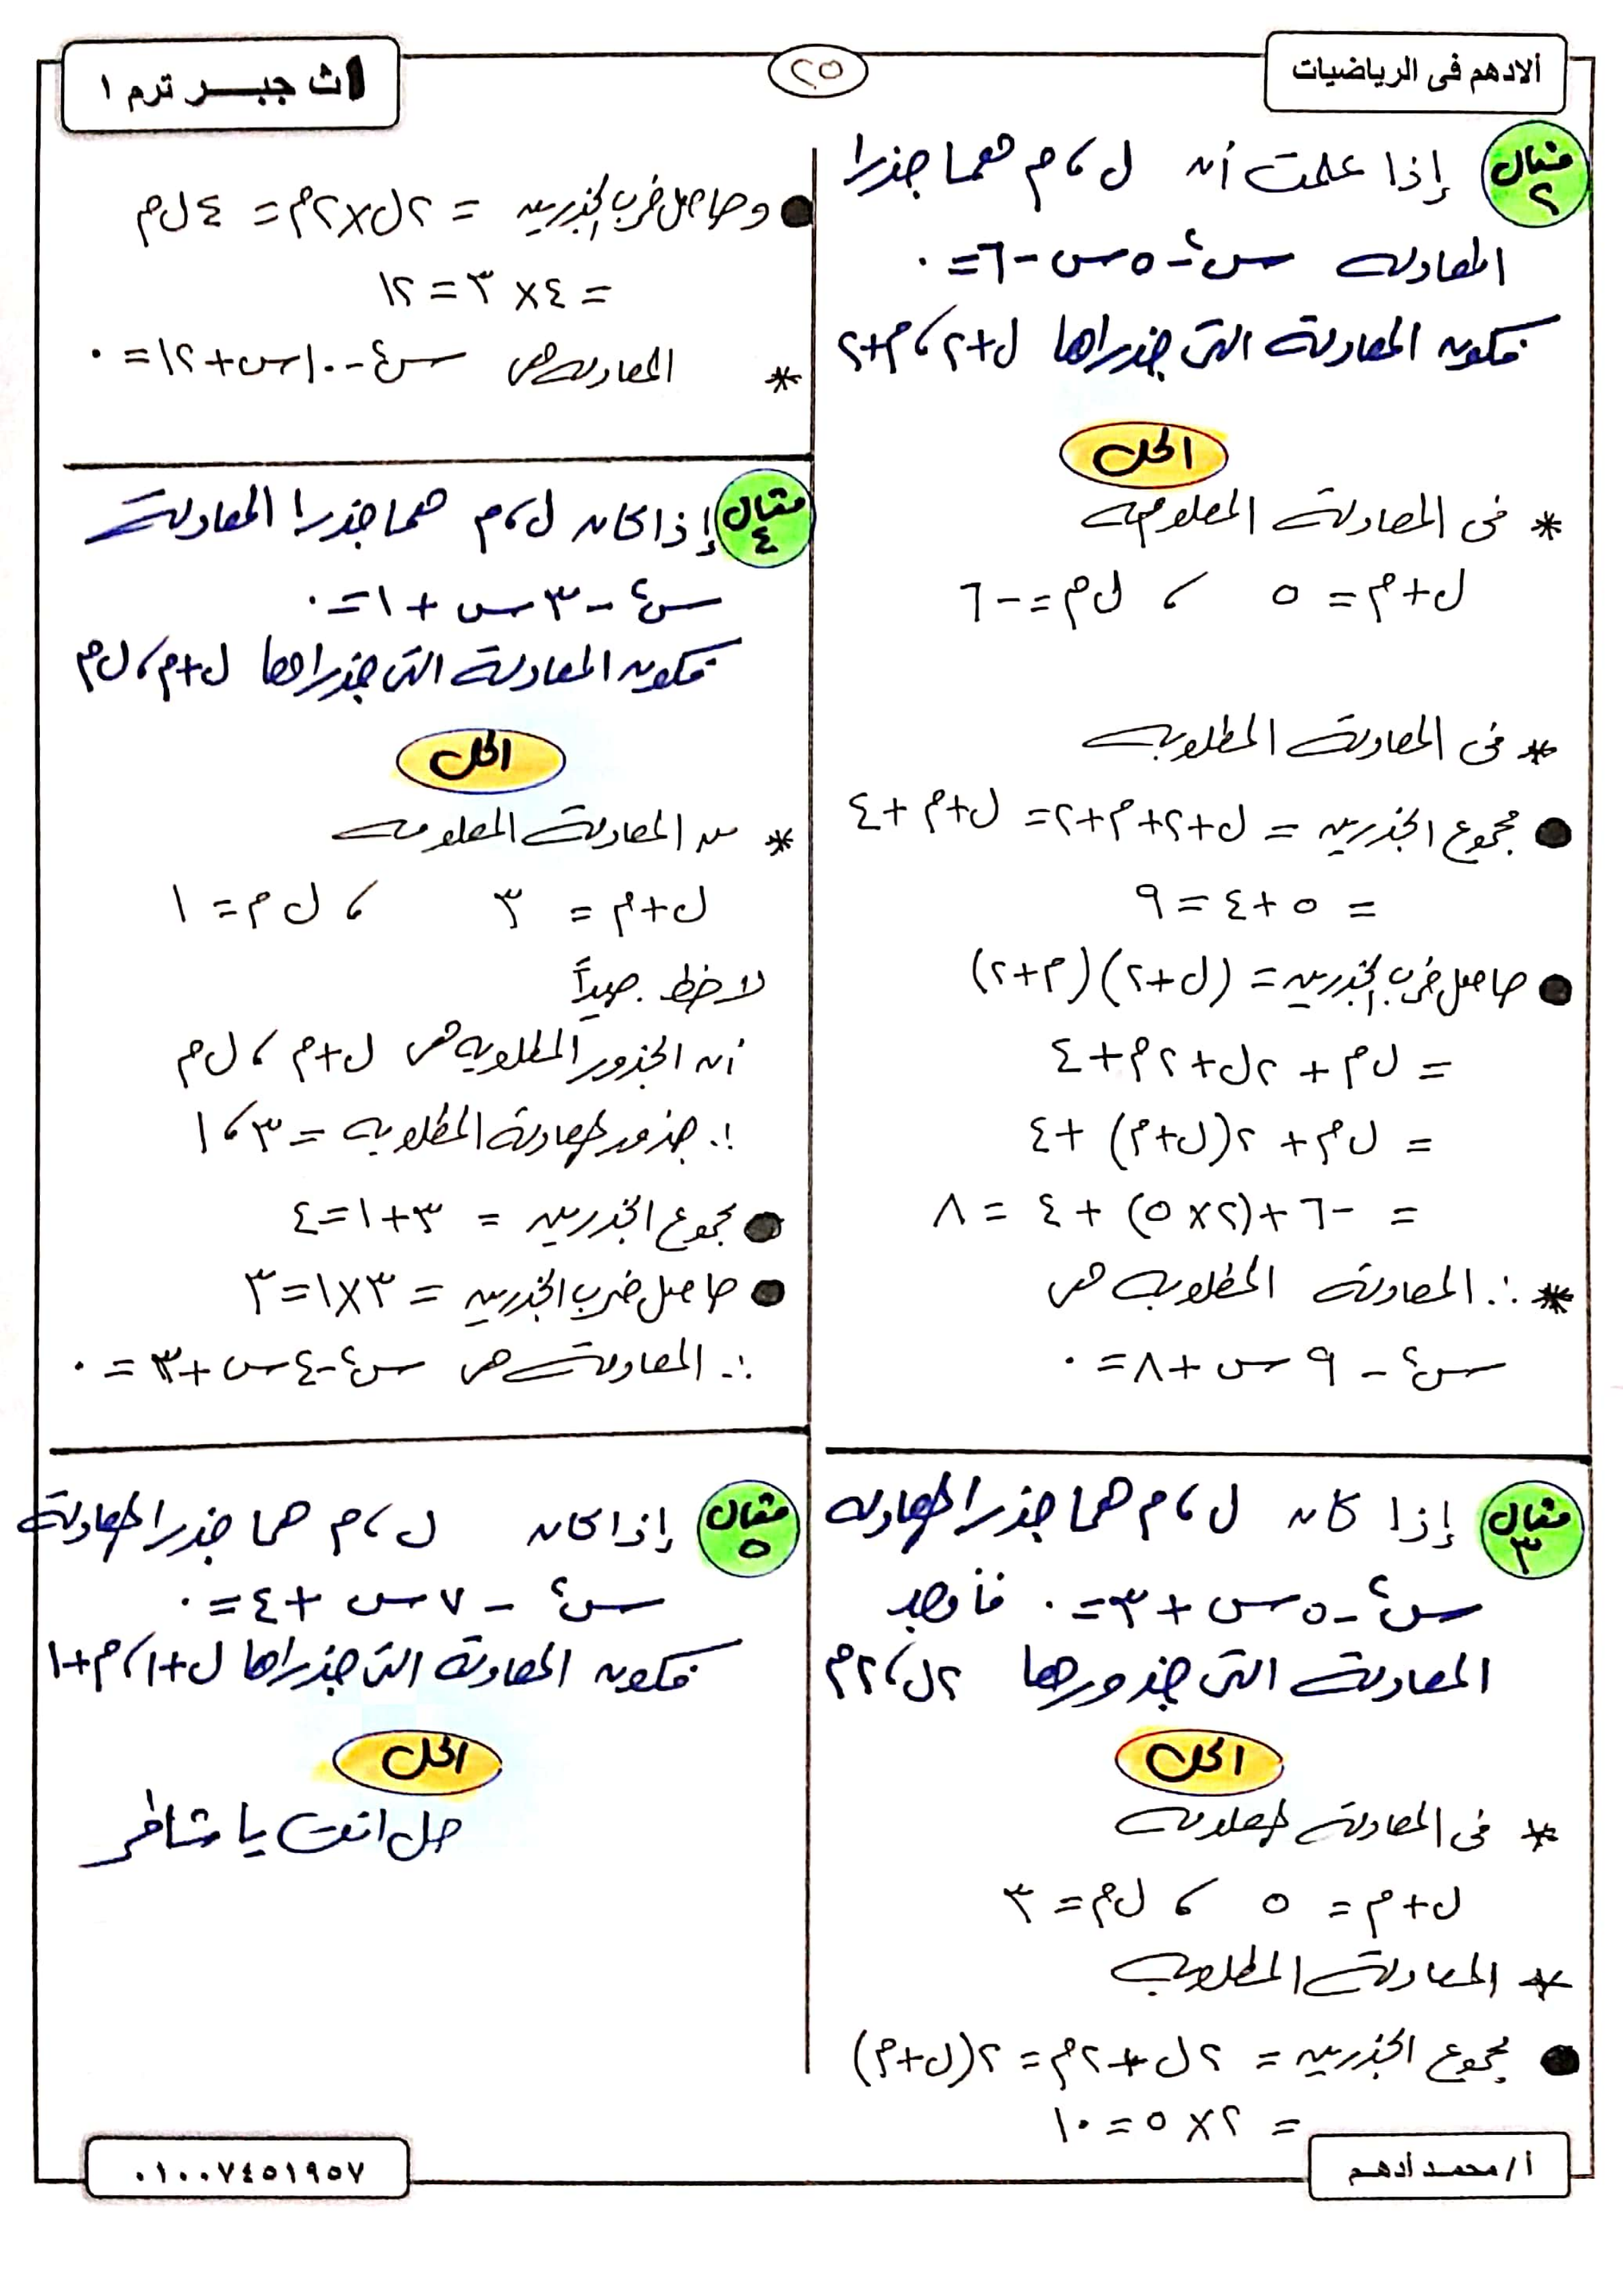 ألادهم فى الرياضيات
٢٥
١ث جبـــر ترم ١
مثال ٢
إذا علمت أن ل ، م هما جذرا
المعادلة س٢ - ٥س - ٦ = ٠
فكون المعادلة التى جذراها ل+٢ ، م+٢
الحل
* فى المعادلة المعلومة
ل+م = ٥ ، ل م = -٦
* فى المعادلة المطلوبة
● مجموع الجذرين = ل+٢+م+٢ = ل+م+٤
= ٥+٤ = ٩
● حاصل ضرب الجذرين = (ل+٢)(م+٢)
= ل م + ٢ل + ٢م + ٤
= ل م + ٢(ل+م) + ٤
= -٦ + (٢×٥) + ٤ = ٨
* ∴ المعادلة المطلوبة هى
س٢ - ٩س + ٨ = ٠
مثال ٣
إذا كان ل ، م هما جذرا المعادلة
س٢ - ٥س + ٣ = ٠ فأوجد
المعادلة التى جذورها ٢ل ، ٢م
الحل
* فى المعادلة المعلومة
ل+م = ٥ ، ل م = ٣
* المعادلة المطلوبة
● مجموع الجذرين = ٢ل + ٢م = ٢(ل+م)
= ٢×٥ = ١٠
● وحاصل ضرب الجذرين = ٢ل×٢م = ٤ل م
= ٤×٣ = ١٢
* المعادلة هى س٢ - ١٠س + ١٢ = ٠
مثال ٤
إذا كان ل ، م هما جذرا المعادلة
س٢ - ٣س + ١ = ٠
فكون المعادلة التى جذراها ل+م ، ل م
الحل
* من المعادلة المعلومة
ل+م = ٣ ، ل م = ١
لاحظ جيداً
أن الجذور المطلوبة هى ل+م ، ل م
∴ جذور المعادلة المطلوبة = ٣ ، ١
● مجموع الجذرين = ٣+١ = ٤
● حاصل ضرب الجذرين = ٣×١ = ٣
∴ المعادلة هى س٢ - ٤س + ٣ = ٠
مثال ٥
إذا كان ل ، م هما جذرا المعادلة
س٢ - ٧س + ٤ = ٠
فكون المعادلة التى جذراها ل+١ ، م+١
الحل
حل انت يا شاطر
أ/محمد أدهم
٠١٠٠٧٤٥١٩٥٧